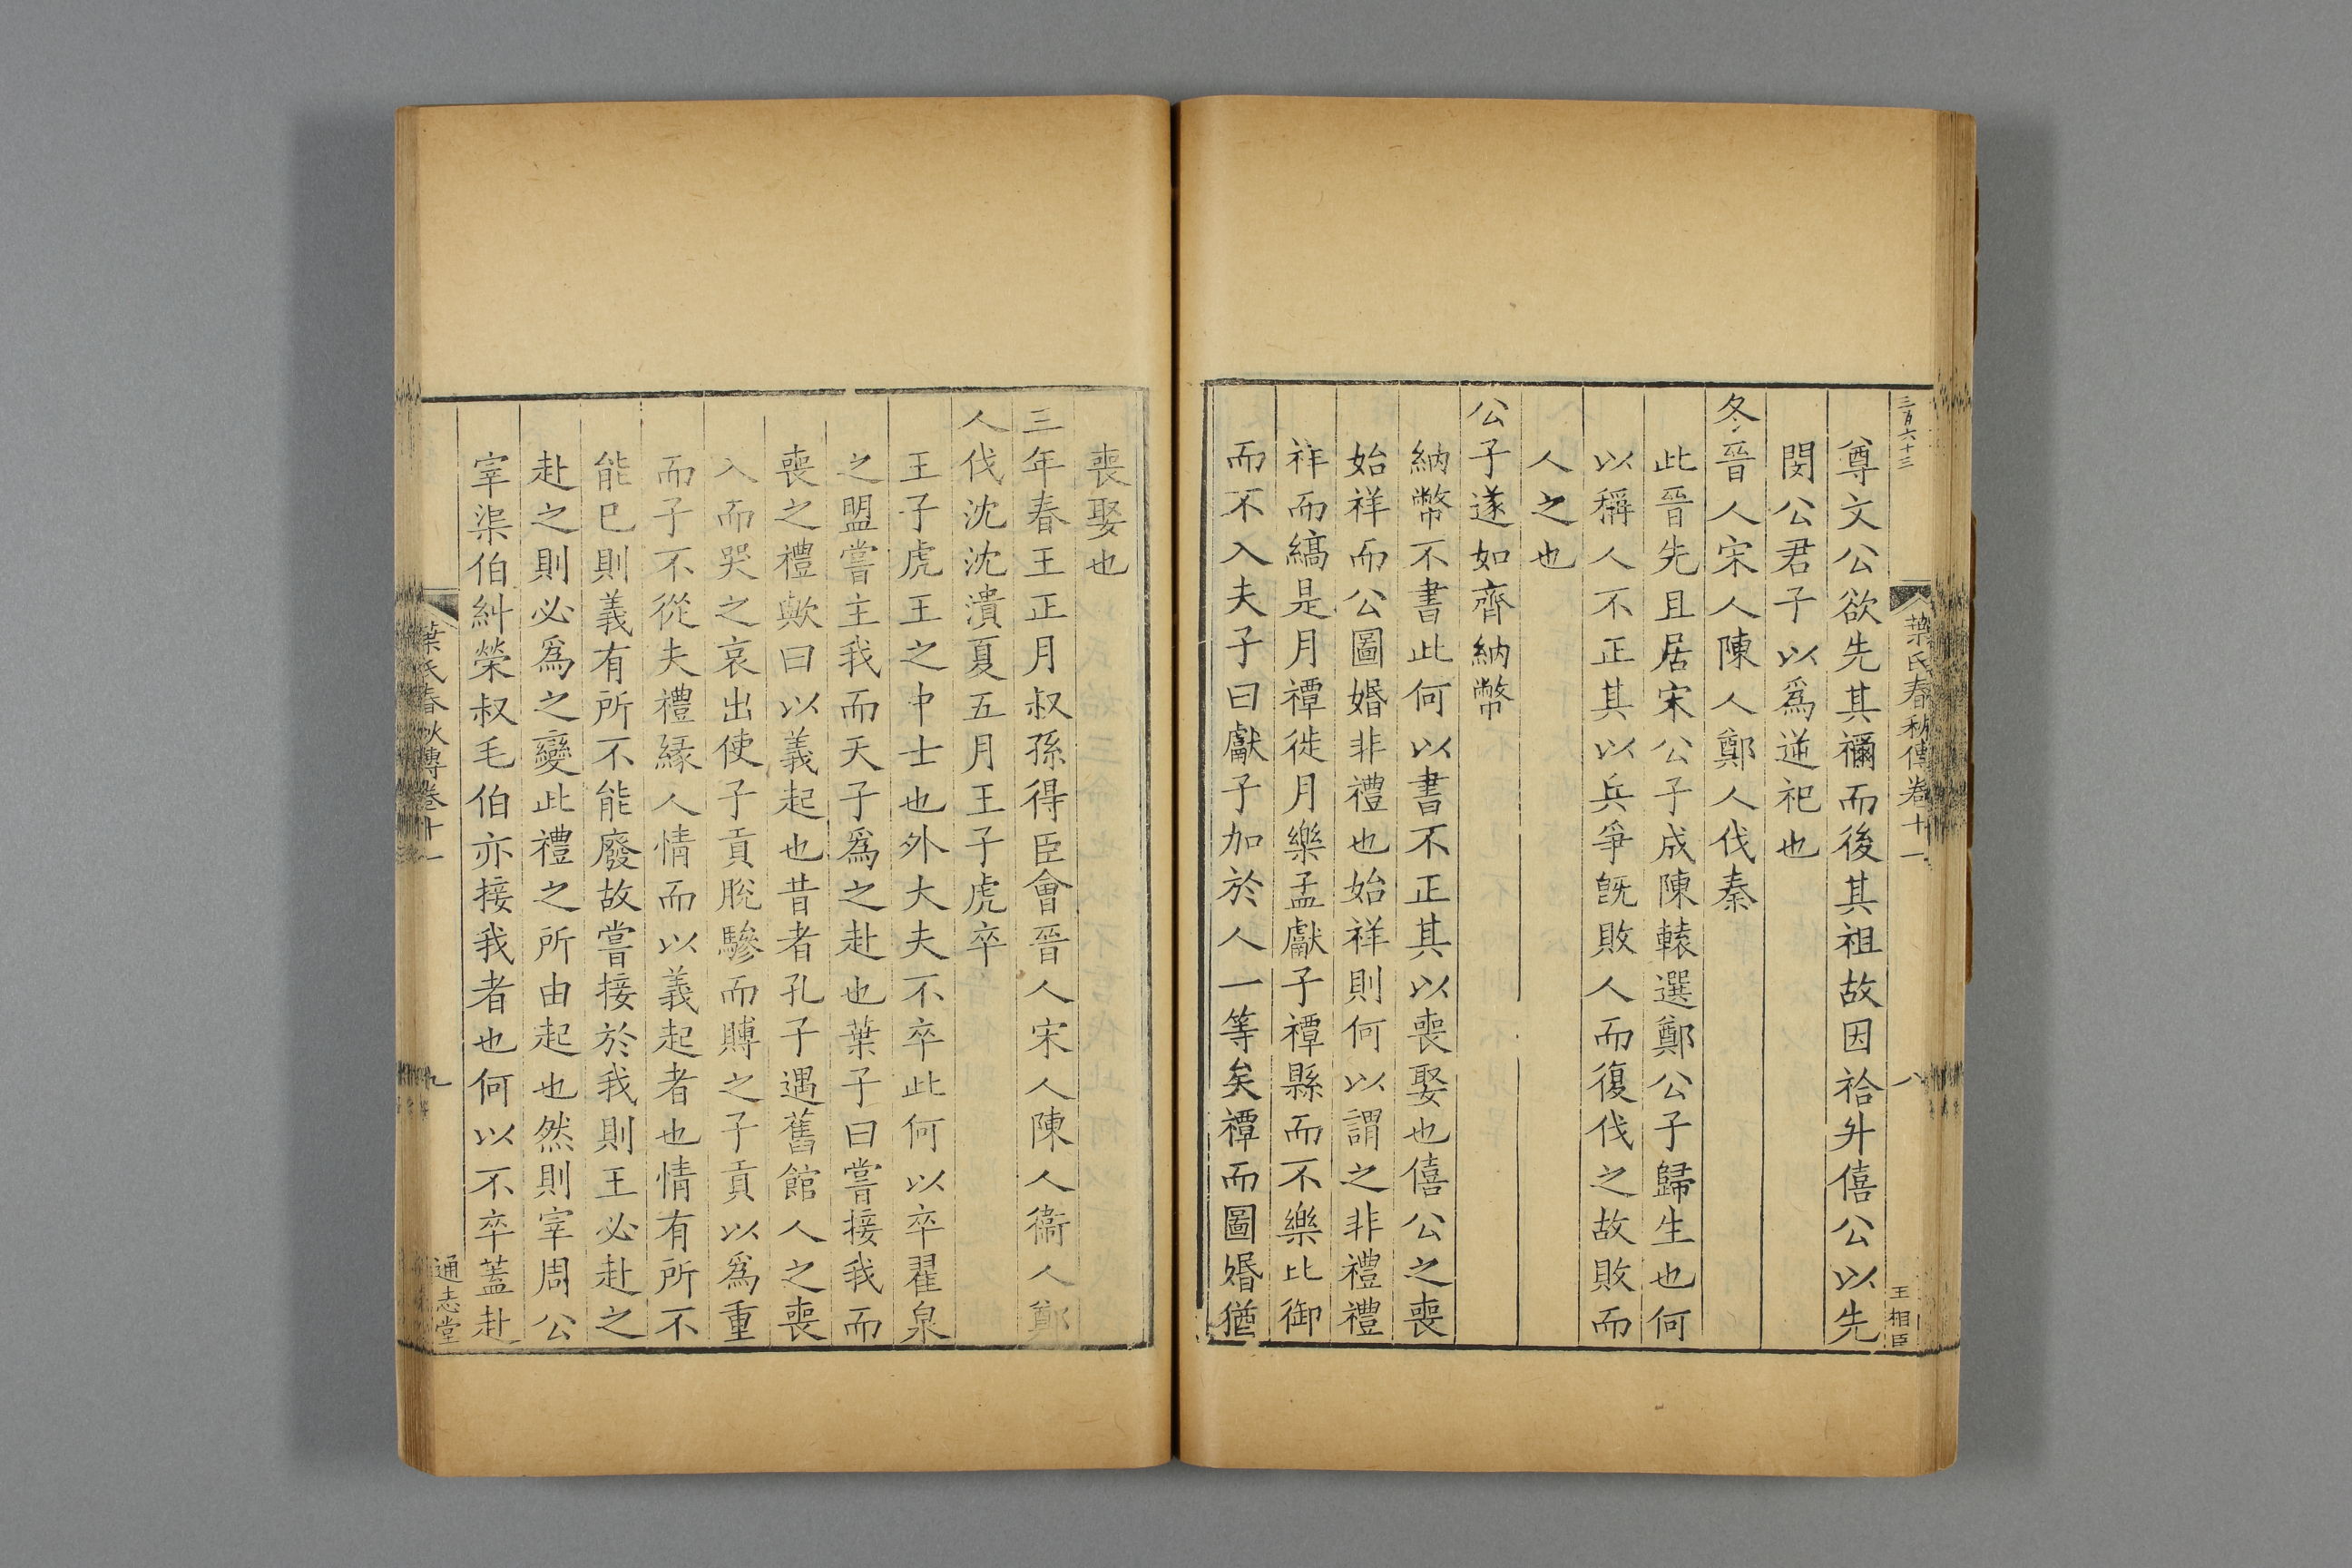 三百六十三
葉氏春秋傳卷十一
八
王相臣
尊文公欲先其禰而後其祖故因祫升僖公以先
閔公君子以爲逆祀也
冬晉人宋人陳人鄭人伐秦
此晉先且居宋公子成陳轅選鄭公子歸生也何
以稱人不正其以兵爭旣敗人而復伐之故敗而
人之也
公子遂如齊納幣
納幣不書此何以書不正其以喪娶也僖公之喪
始祥而公圖婚非禮也始祥則何以謂之非禮禮
祥而縞是月禫徙月樂孟獻子禫縣而不樂比御
而不入夫子曰獻子加於人一等矣禫而圖婚猶
喪娶也
三年春王正月叔孫得臣會晉人宋人陳人衞人鄭
人伐沈沈潰夏五月王子虎卒
王子虎王之中士也外大夫不卒此何以卒翟泉
之盟嘗主我而天子爲之赴也葉子曰嘗接我而
喪之禮歟曰以義起也昔者孔子遇舊館人之喪
入而哭之哀出使子貢脫驂而賻之子貢以爲重
而子不從夫禮緣人情而以義起者也情有所不
能已則義有所不能廢故嘗接於我則王必赴之
赴之則必爲之變此禮之所由起也然則宰周公
宰渠伯糾榮叔毛伯亦接我者也何以不卒蓋赴
葉氏春秋傳卷十一
九
通志堂